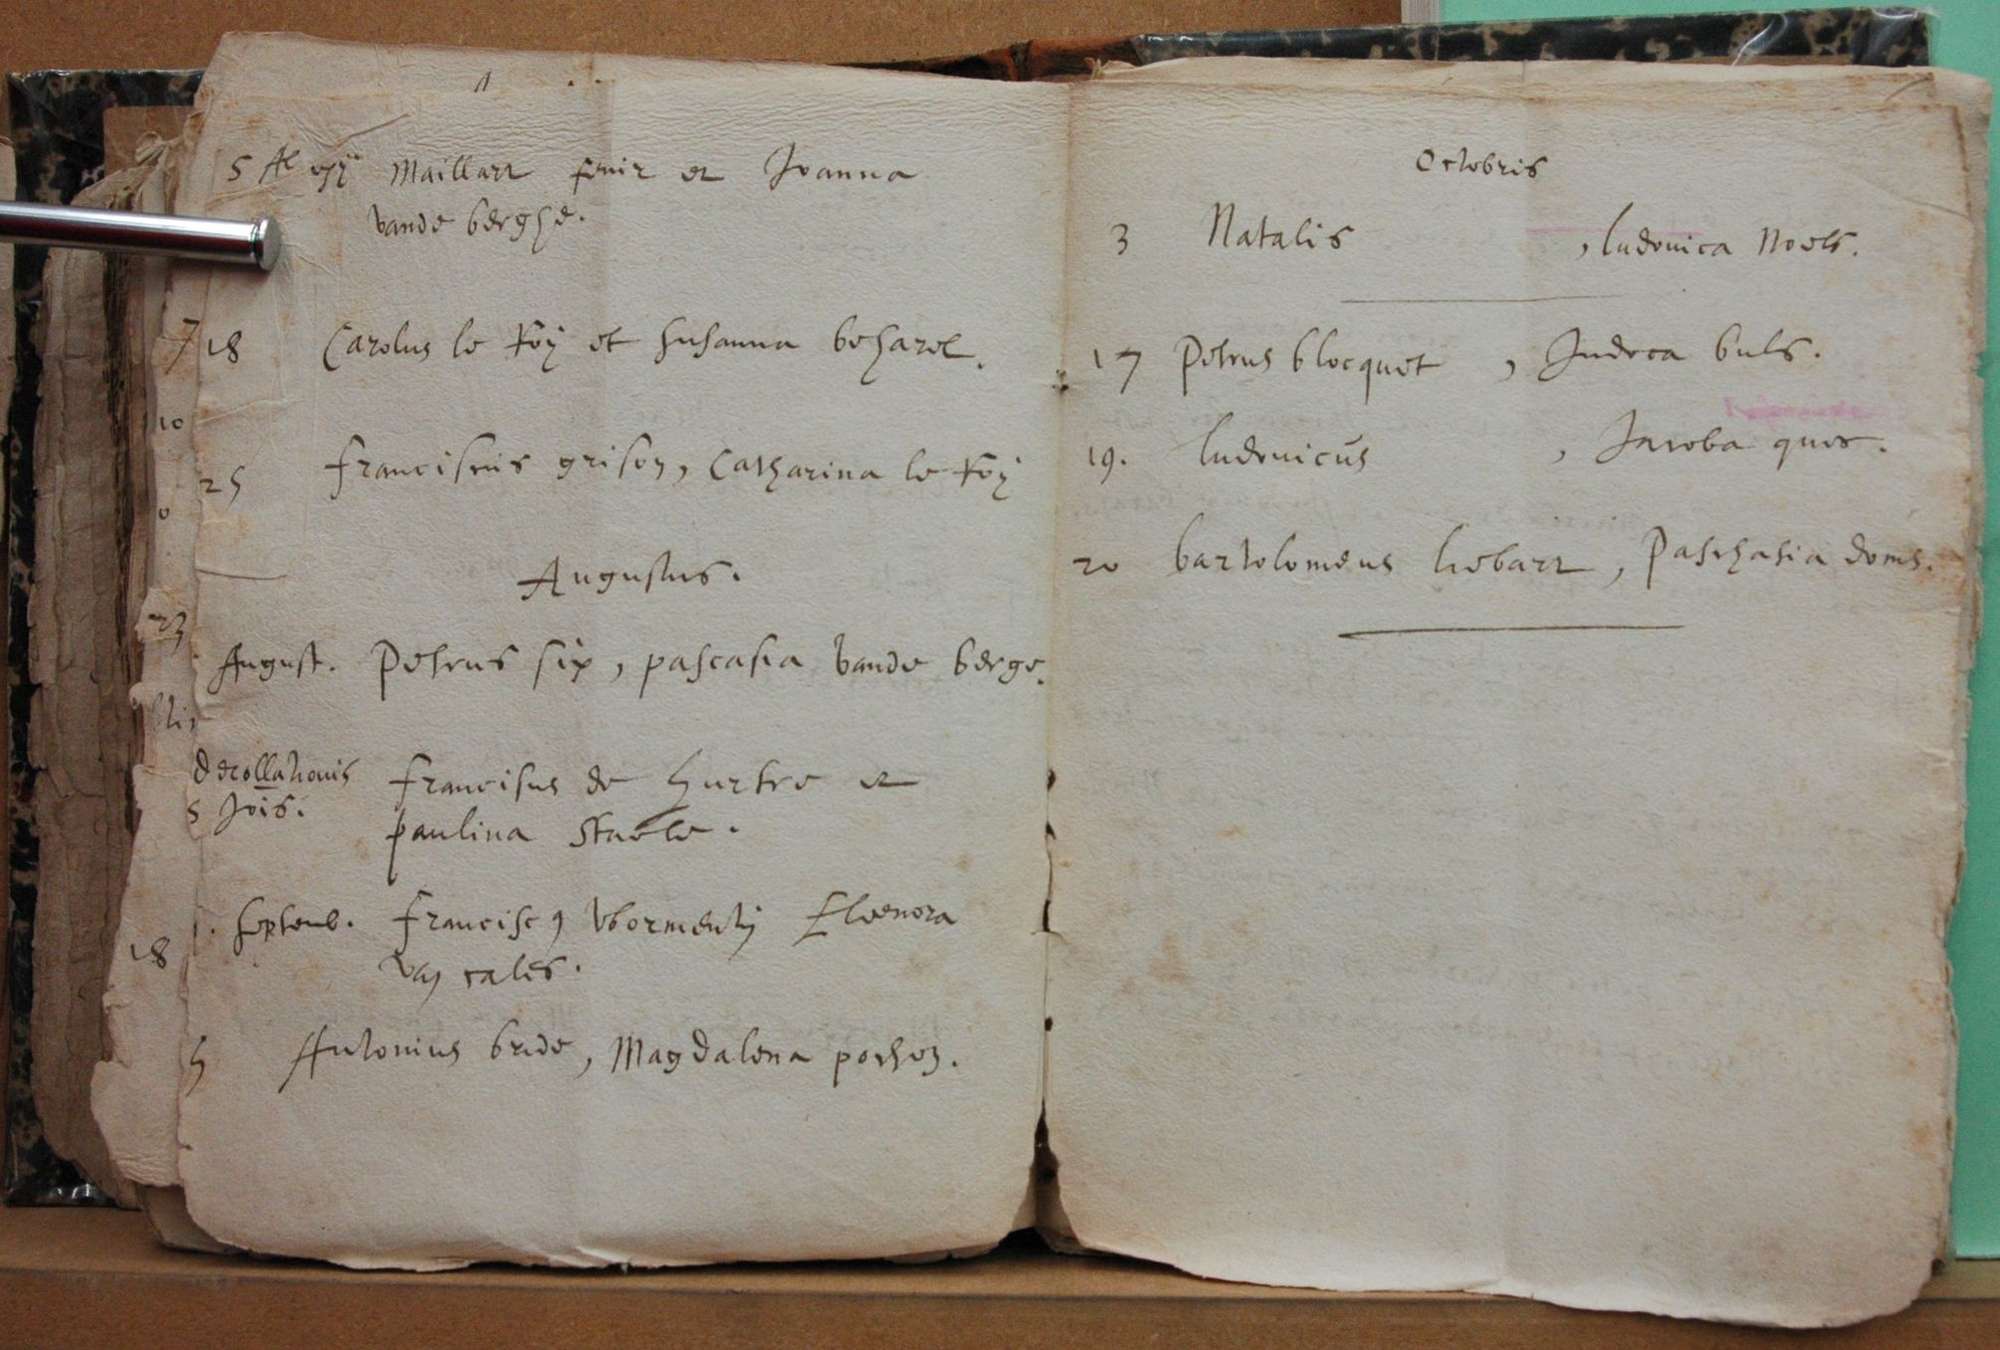 Maillart et Joanna
vande berghe.
18 Carolus le Roÿ et Susanna beharel.
25 franciscus grison, Catharina le Roÿ
Augustus.
August. Petrus six, pascasia vande berge.
decollationis franciscus de hurtre et
S Jois. paulina Staele.
1. Septemb. Francisc9 Wormentÿ Eleonora
van cales.
5 Antonius bride, Magdalena pochon.
Octobris
3 Natalis , ludovica Noels.
17 Petrus blocquet , Judoca buls.
19. ludovicus , Jacoba quos.
20 bartolomeus liebart, Paschasia doms.
10
0
23
18